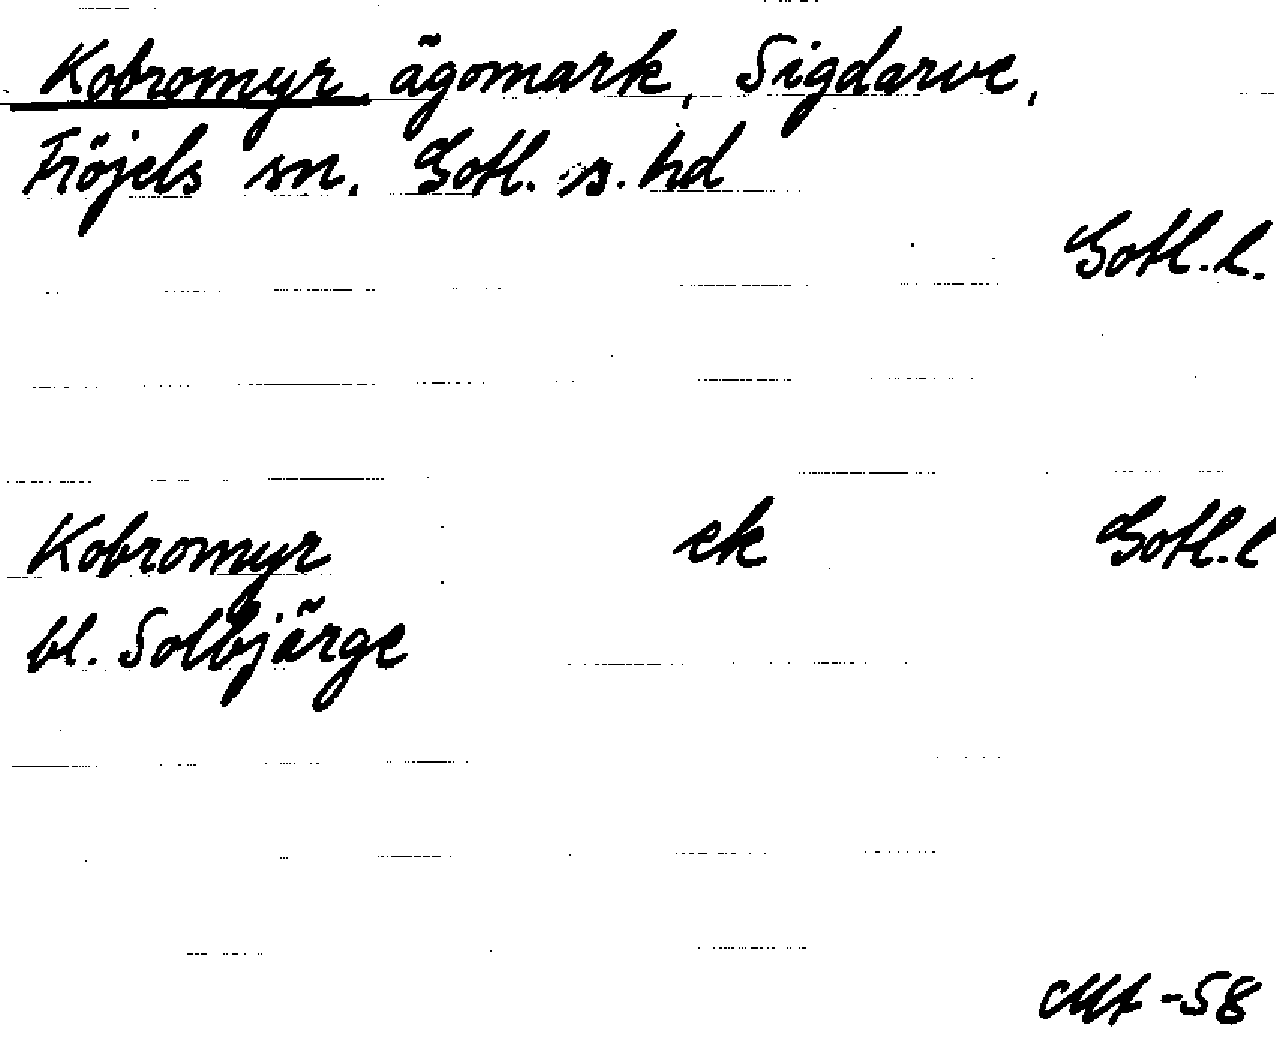 Kobromyr, ägomark, Sigdarve,
Fröjels sn. Gotl. s. hd
Gotl. l.
Kobromyr ek Gotl. l
bl. Solbjärge
-58